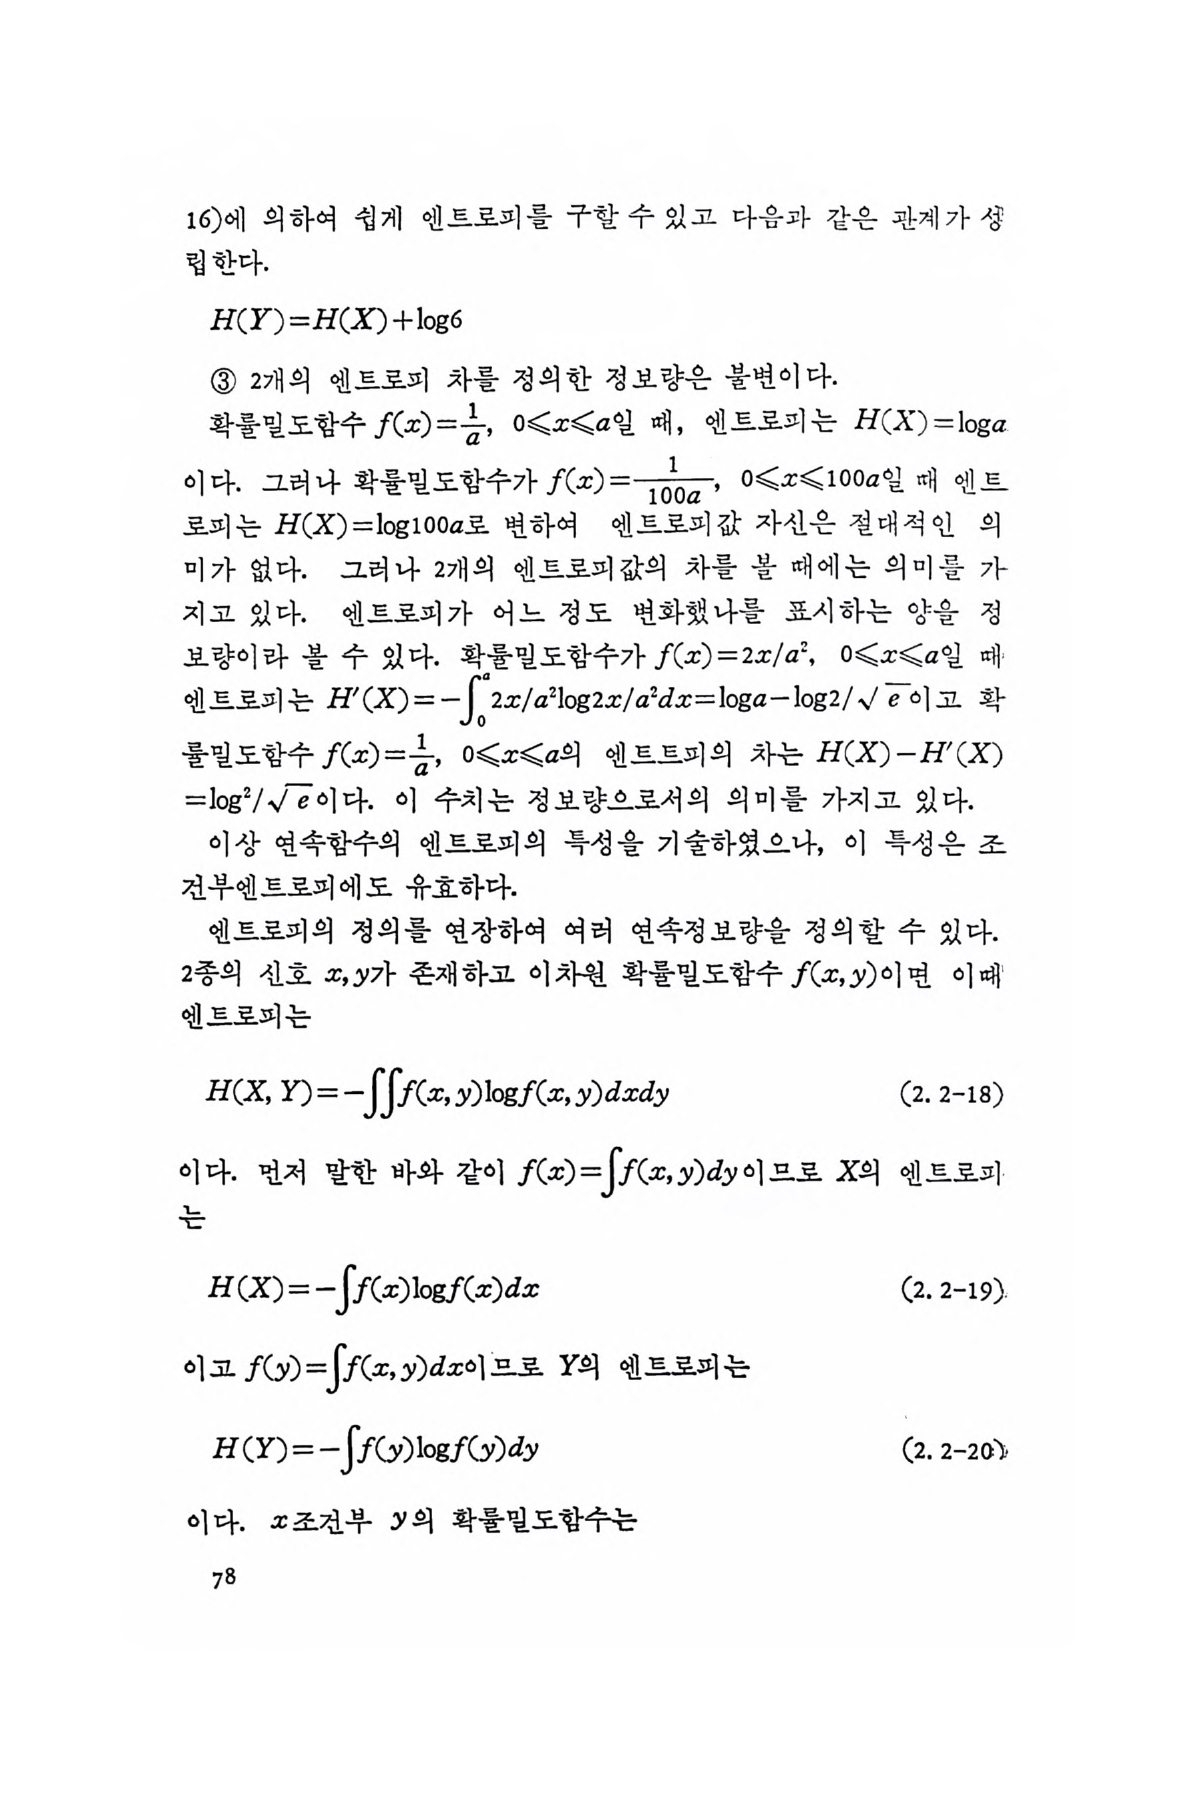 16)에 의하여 쉽게 엔트로피를 구할 수 있고 다음과 같은 관계가 성
립한다.
H(Y)=H(X)+log6
③ 2개의 엔트로피 차를 정의한 정보량은 불변이다.
확률밀도함수 f(x)=1/a, 0≤x≤a일 때, 엔트로피는 H(X)=loga
이다. 그러나 확률밀도함수가 f(x)=1/100a, 0≤x≤100a일 때 엔트
로피는 H(X)=log100a로 변하여 엔트로피값 자신은 절대적인 의
미가 없다. 그러나 2개의 엔트로피값의 차를 볼 때에는 의미를 가
지고 있다. 엔트로피가 어느 정도 변화했나를 표시하는 양을 정
보량이라 볼 수 있다. 확률밀도함수가 f(x)=2x/a², 0≤x≤a일 때
엔트로피는 H′(X)=−∫₀ᵃ 2x/a²log2x/a²dx=loga−log2/√e이고 확
률밀도함수 f(x)=1/a, 0≤x≤a의 엔트트피의 차는 H(X)−H′(X)
=log²/√e이다. 이 수치는 정보량으로서의 의미를 가지고 있다.
이상 연속함수의 엔트로피의 특성을 기술하였으나, 이 특성은 조
건부엔트로피에도 유효하다.
엔트로피의 정의를 연장하여 여러 연속정보량을 정의할 수 있다.
2종의 신호 x,y가 존재하고 이차원 확률밀도함수 f(x,y)이면 이때
엔트로피는
H(X, Y)=−∫∫f(x,y)logf(x,y)dxdy (2. 2-18)
이다. 먼저 말한 바와 같이 f(x)=∫f(x,y)dy이므로 X의 엔트로피
는
H(X)=−∫f(x)logf(x)dx (2. 2-19)
이고 f(y)=∫f(x,y)dx이므로 Y의 엔트로피는
H(Y)=−∫f(y)logf(y)dy (2. 2-20)
이다. x조건부 y의 확률밀도함수는
78